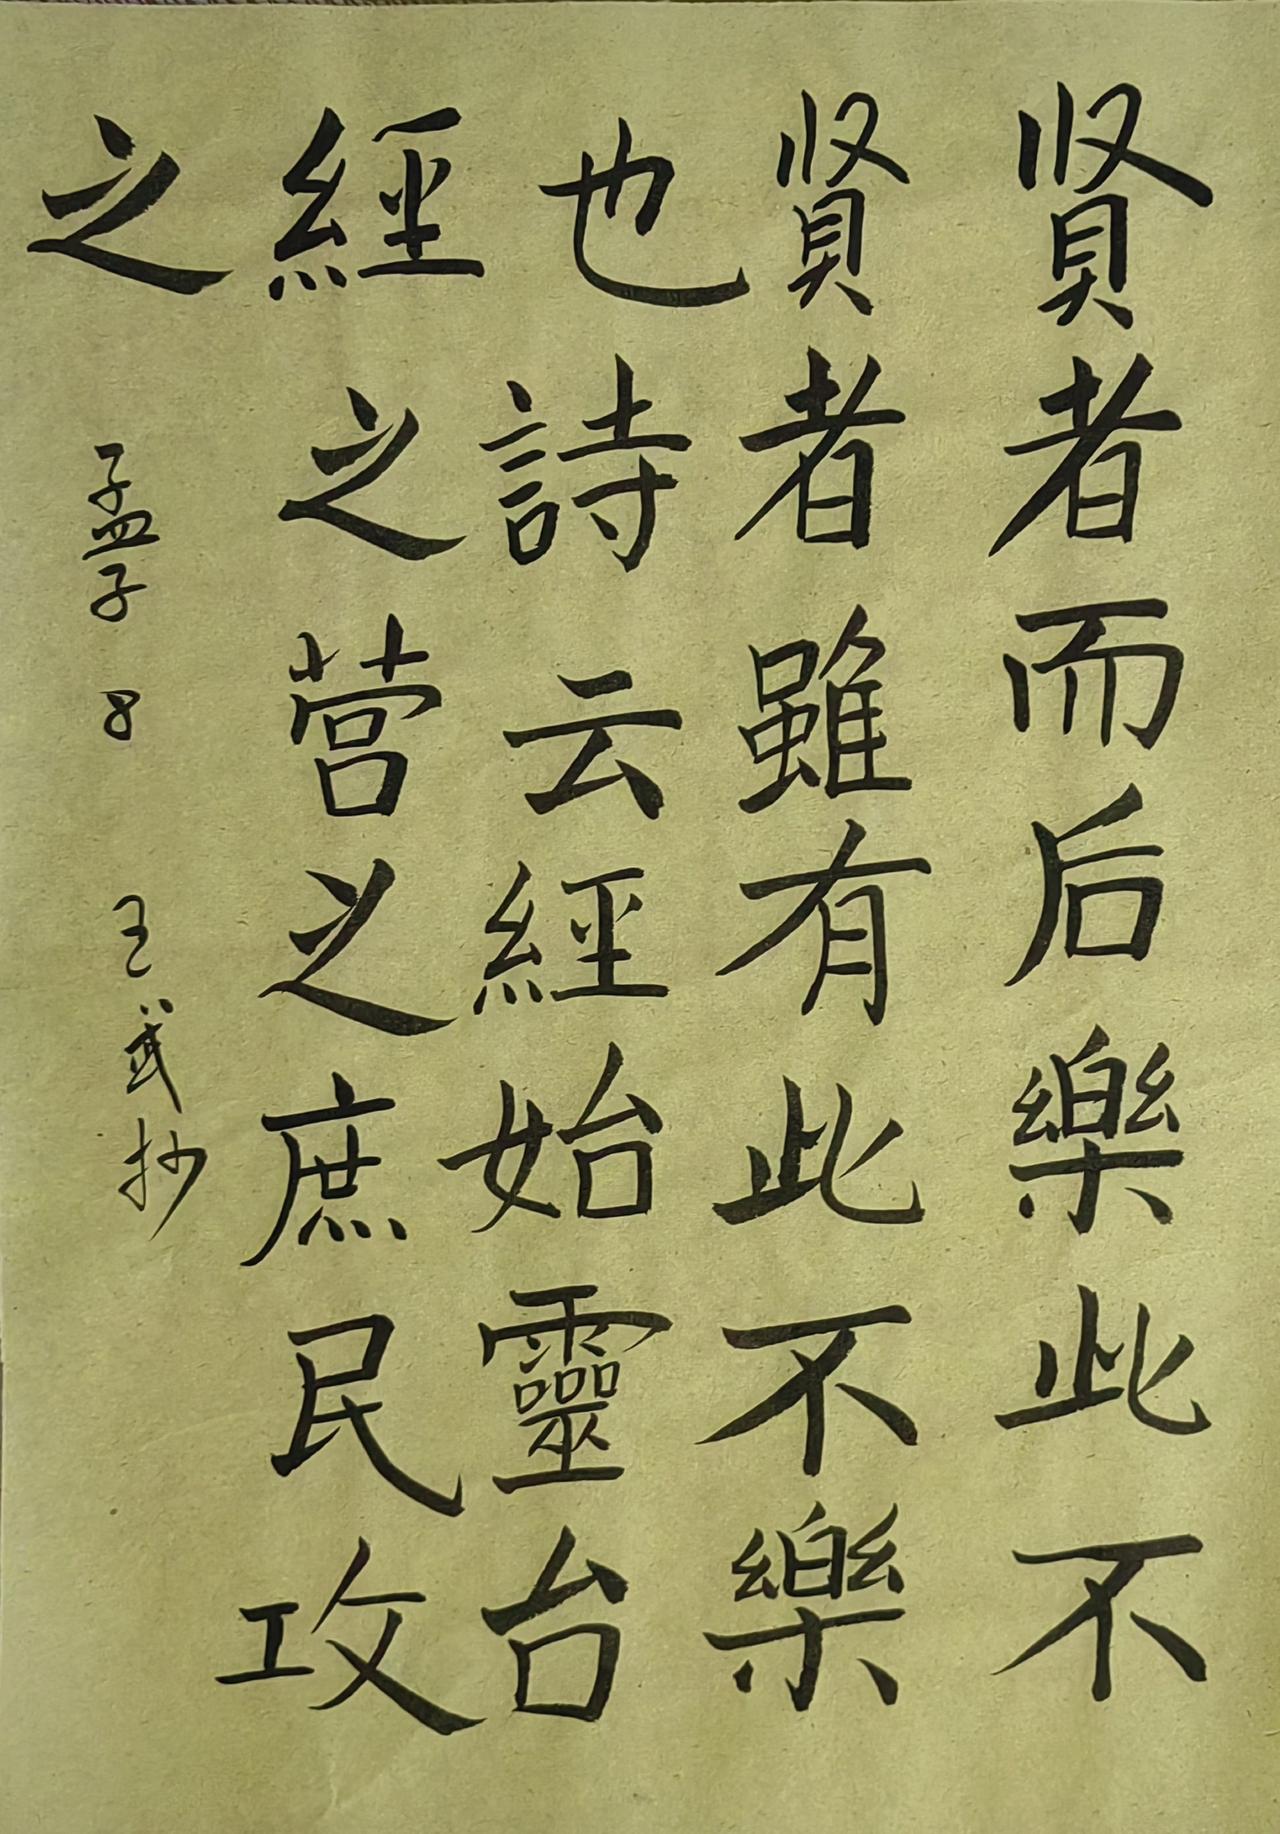 贤者而后樂此不
贤者雖有此不樂
也詩云經始靈台
經之营之庶民攻
之
孟子 8 王武抄